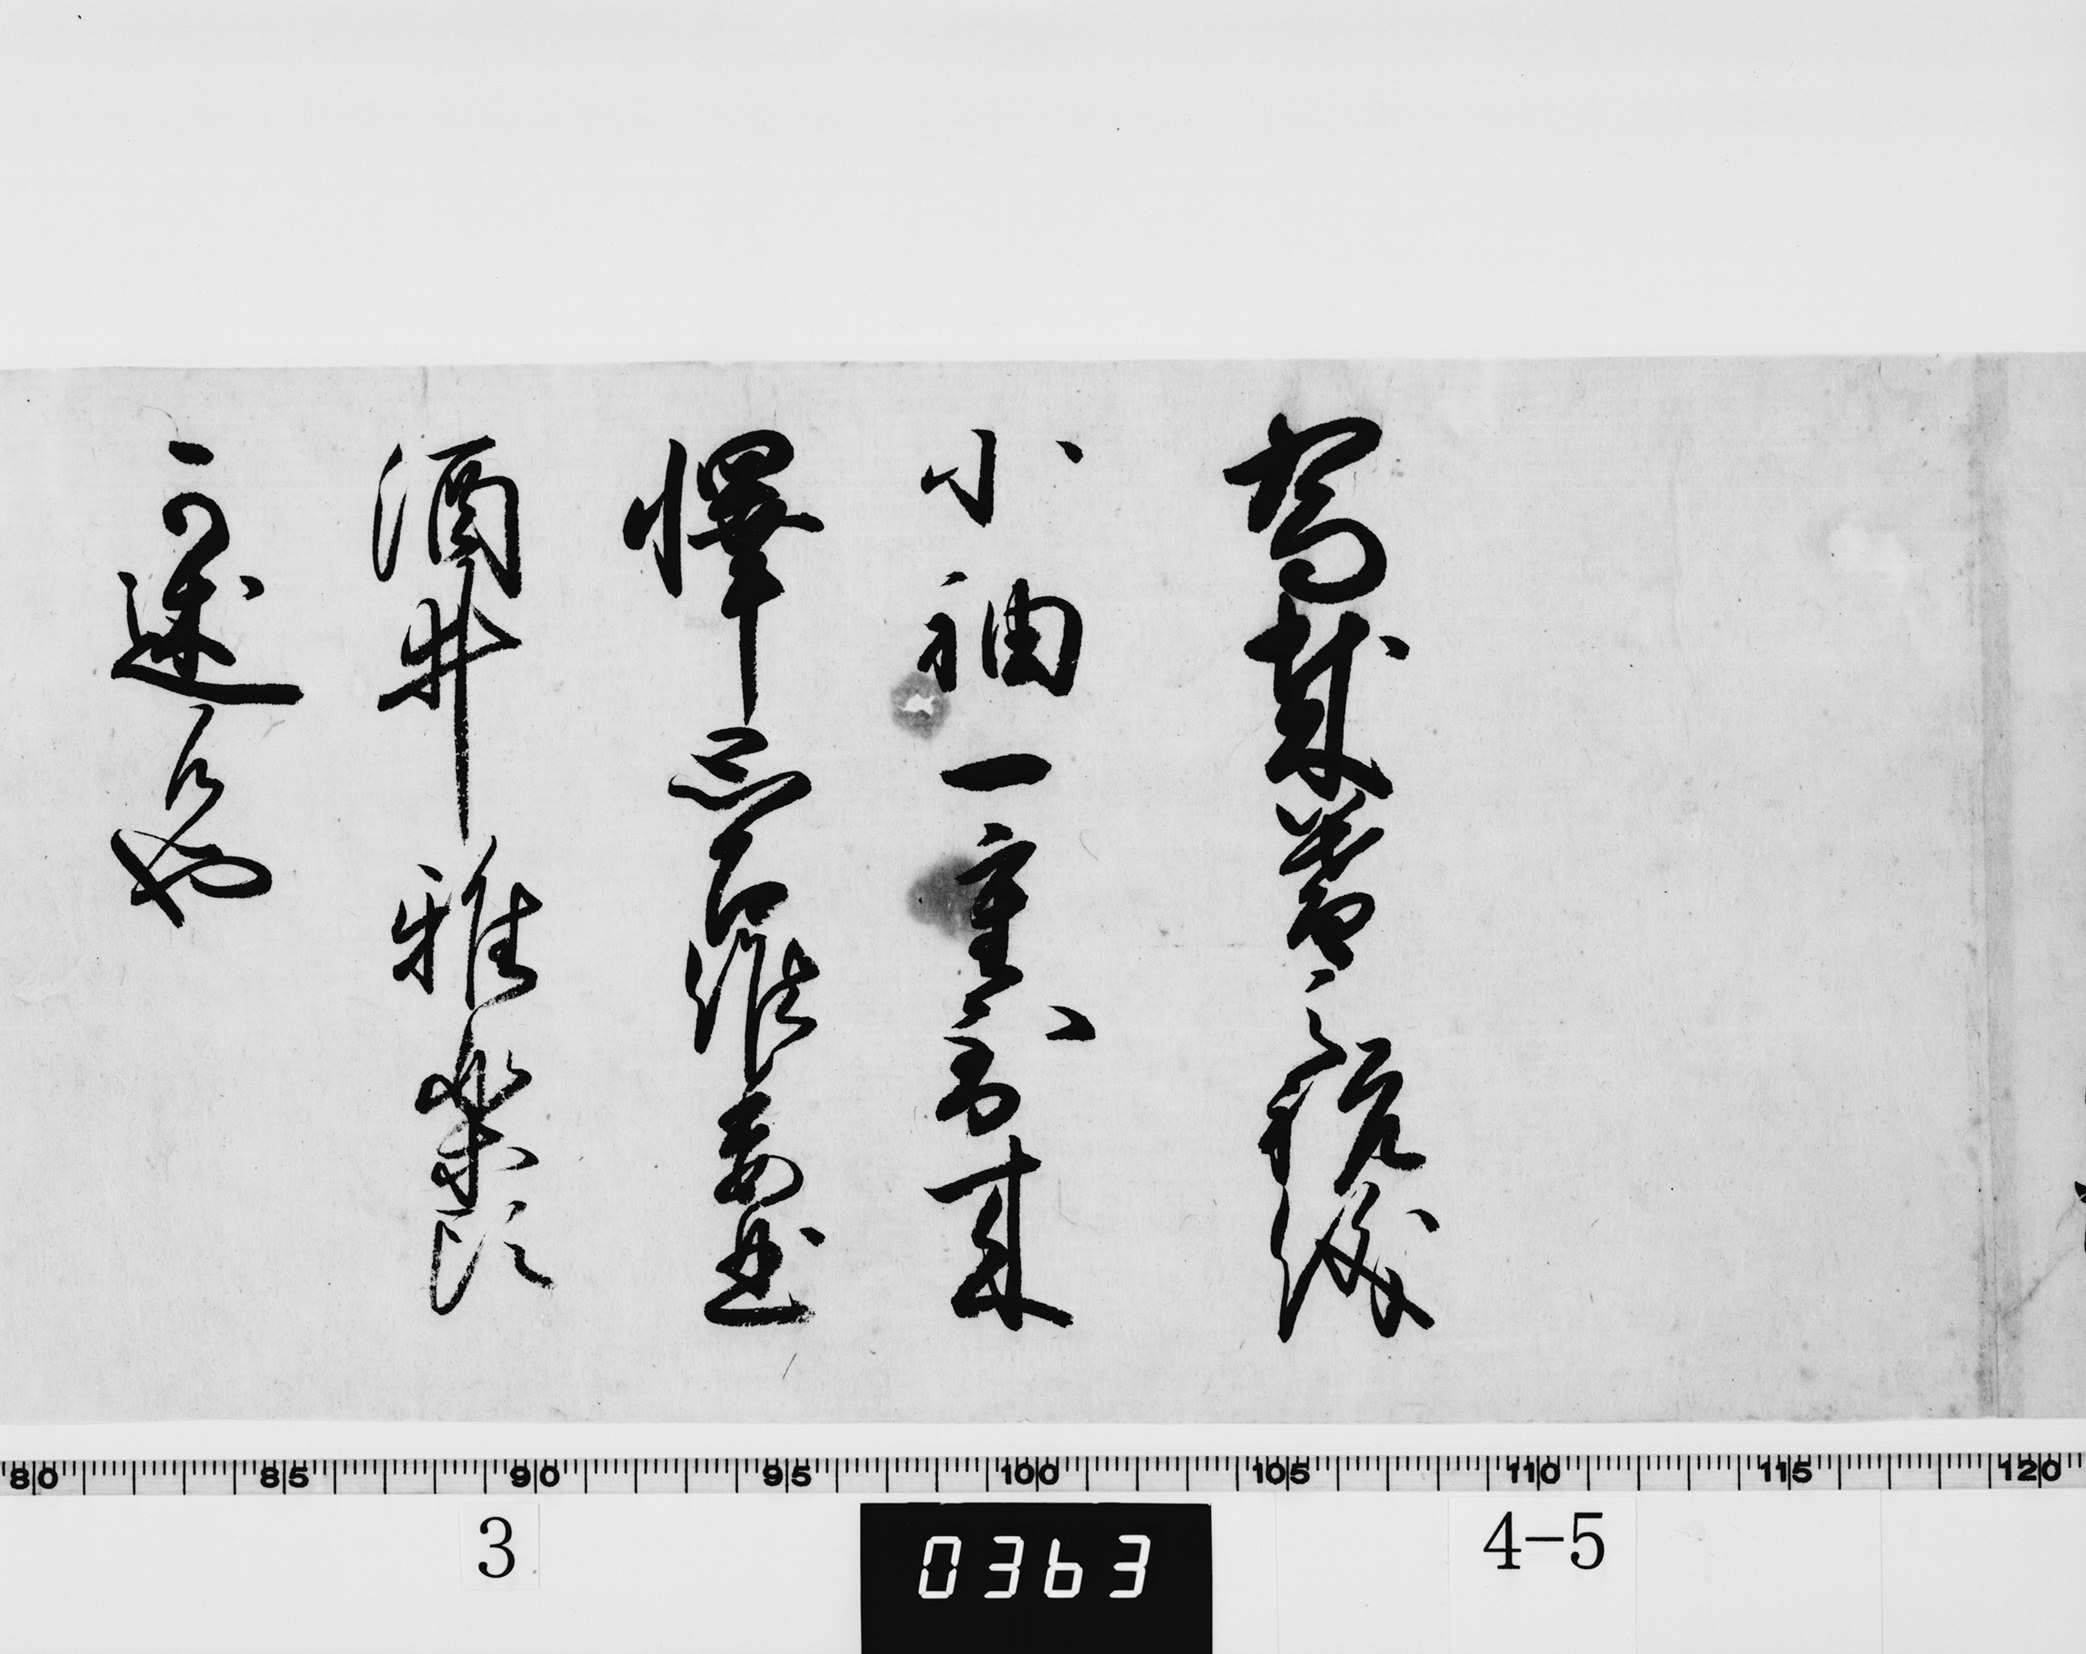 為歳暮之祝儀
小袖一重到来
懌思召候委曲
酒井雅楽頭
可述候也
80 85 90 95 100 105 110 115 120
3 0363 4-5